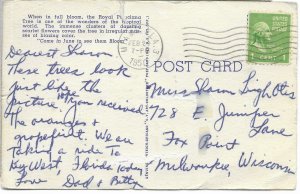 When in full bloom, the Royal Poinciana
Tree is one of the wonders of the tropical
world. The immense clusters of deepening
scarlet flowers cover the tree in irregular mass
of blazing color.
"Come in June to see them Bloom"
Dearest Sharon
These trees look
just like the
picture, you received
The oranges &
grapefruit. We are
taking a ride to
Key West, Florida today
Love, Dad & Betty
FEB
7-PM
1951
POST CARD
1 CENT
Miss Sharon Leigh Otis
728 E. Juniper
Lane
Fox Point
Milwaukee, Wisconsin